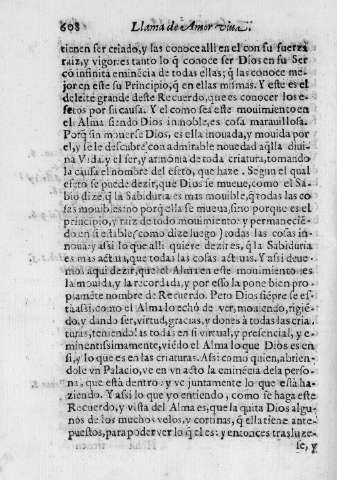 608 Llama de Amor viua.
tienen ser criado, y las conoce alli en el con su fuerza
raiz, y vigor: es tanto lo q̃ conoce ser Dios en su Ser
cõ infinita eminẽcia de todas ellas; q̃ las conoce me-
jor en este su Principio, q̃ en ellas mismas. Y este es el
deleite grande deste Recuerdo, que es conocer los e-
fetos por su causa. Y el como sea este mouimiento en
el Alma siendo Dios inmoble, es cosa marauillosa.
Porq̃ sin mouerse Dios, es ella inouada, y mouida por
el, y se le descubre con admirable nouedad aq̃lla diui-
na Vida, y el ser, y armonia de toda criatura, tomando
la causa el nombre del efeto, que haze. Segun el qual
efeto se puede dezir, que Dios se mueue, como el Sa-
bio dize, q̃ la Sabiduria es mas mouible, q̃ todas las co
sas mouibles: no porq̃ ella se mueua, sino porque es el
principio, y raiz de todo mouimiento: y permaneciẽ-
do en si estable (como dize luego) todas las cosas in-
noua: y assi lo que alli quiere dezir es, q̃ la Sabiduria
es mas actiua, que todas las cosas actiuas. Y assi deue-
mos aqui dezir, que el Alma en este mouimiento es
la mouida, y la recordada, y por esso la pone bien pro-
piamẽte nombre de Recuerdo. Pero Dios siẽpre se es-
tà assi, como el Alma lo echò de ver, mouiendo, rigiẽ-
do, y dando ser, virtud, gracias, y dones à todas las cria-
turas, teniendolas todas en si virtual, y presencial, y e-
minentissimamente, viẽdo el Alma lo que Dios es en
si, y lo que es en las criaturas. Assi como quien, abrien-
dole vn Palacio, ve en vn acto la eminẽcia dela perso-
na, que està dentro: y ve juntamente lo que està ha-
ziendo. Y assi lo que yo entiendo, como se haga este
Recuerdo, y vista del Alma es, que la quita Dios algu-
nos de los muchos velos, y cortinas, q̃ ella tiene ante-
puestos, para poder ver lo q̃ el es: y entonces traslu ze-
se, y